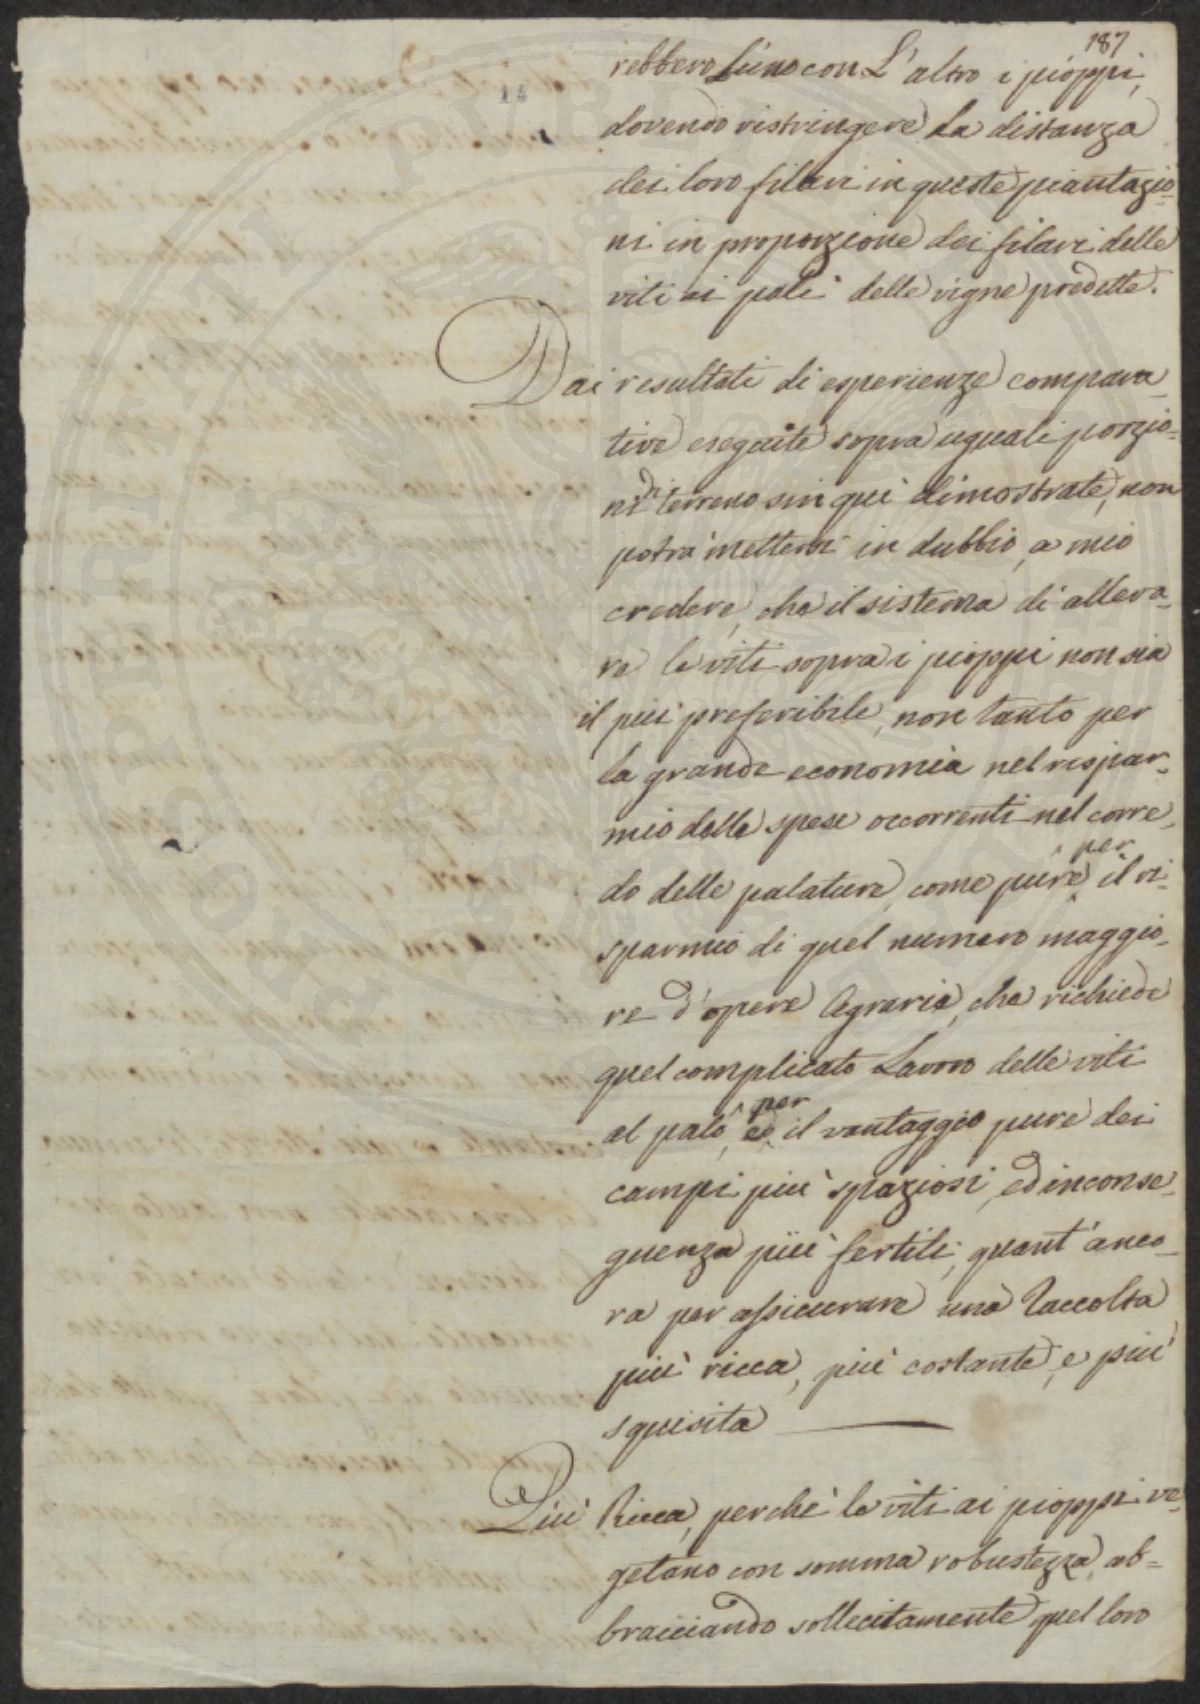 187
rebbero l'uno con L'altro i pioppi,
dovendo ristringere La distanza
dei loro filari in queste piantagio-
ni in proporzione dei filari delle
viti ai pali delle vigne predette.
Dai resultati di esperienze compara-
tive eseguite sopra uguali porzio-
ni di terreno sin qui dimostrate, non
potrà mettersi in dubbio, a mio
credere, che il sistema di alleva-
re le viti sopra i pioppi non sia
il più preferibile, non tanto per
la grande economia nel rispar-
mio delle spese occorrenti nel corre-
do delle palature, come pure per il ri-
sparmio di quel numero maggio-
re d'opere Agrarie, che richiede
quel complicato Lavoro delle viti
al palo, e per il vantaggio pure dei
campi più spaziosi, ed in conse-
guenza più fertili, quant'anco-
ra per assicurare una Raccolta
più ricca, più costante, e più
squisita
Più Ricca, perchè le viti ai pioppi ve-
getano con somma robustezza, ab-
bracciando sollecitamente quel loro